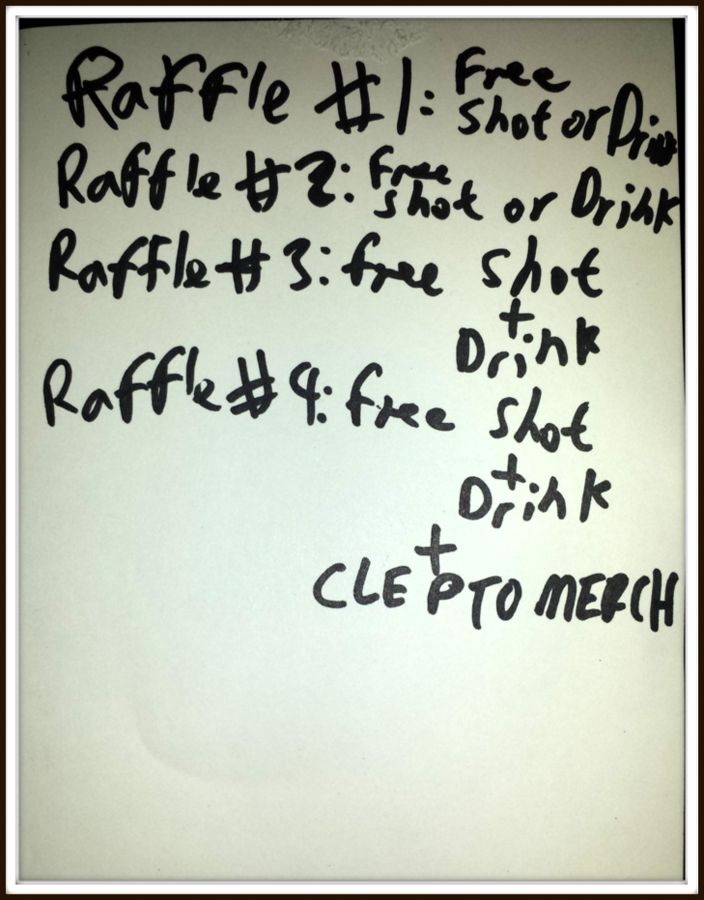 Raffle #1: Free
shot or Drink
Raffle #2: Free
shot or Drink
Raffle #3: free shot
+
Drink
Raffle #4: free shot
+
Drink
+
CLEPTO MERCH